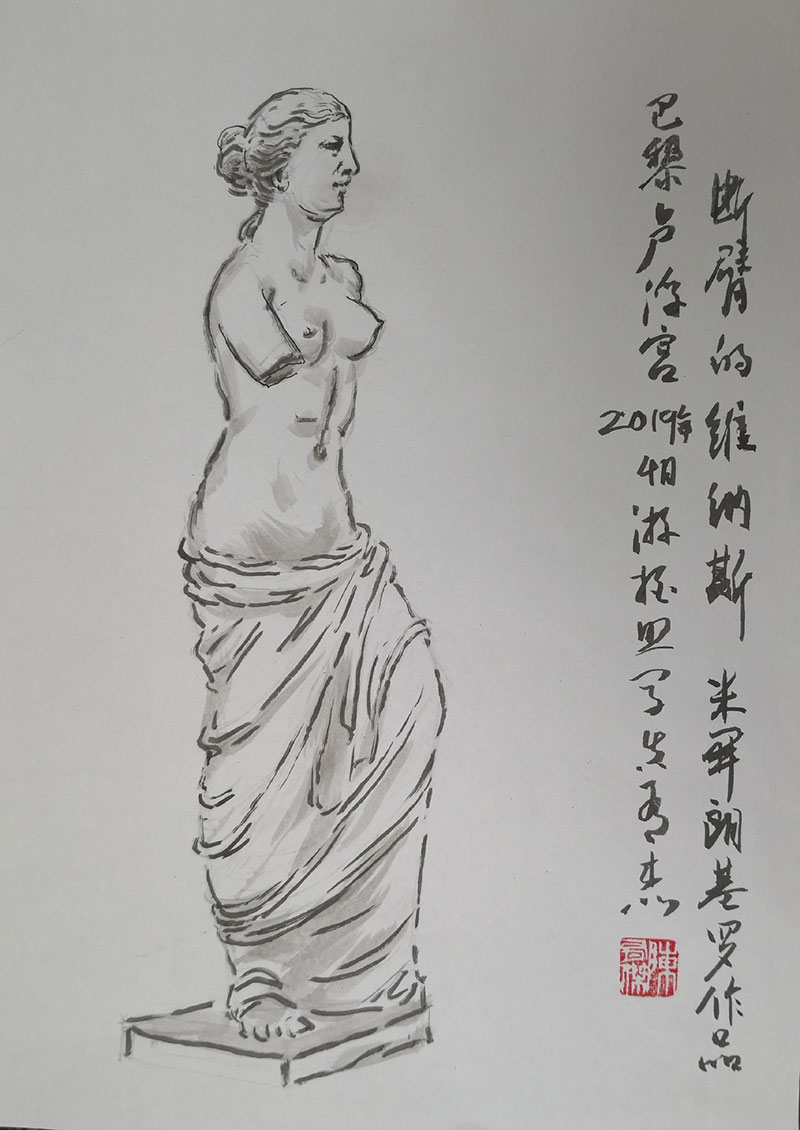 断臂的维纳斯 米開朗基罗作品
巴黎卢浮宫 2019年4月游写生
陳